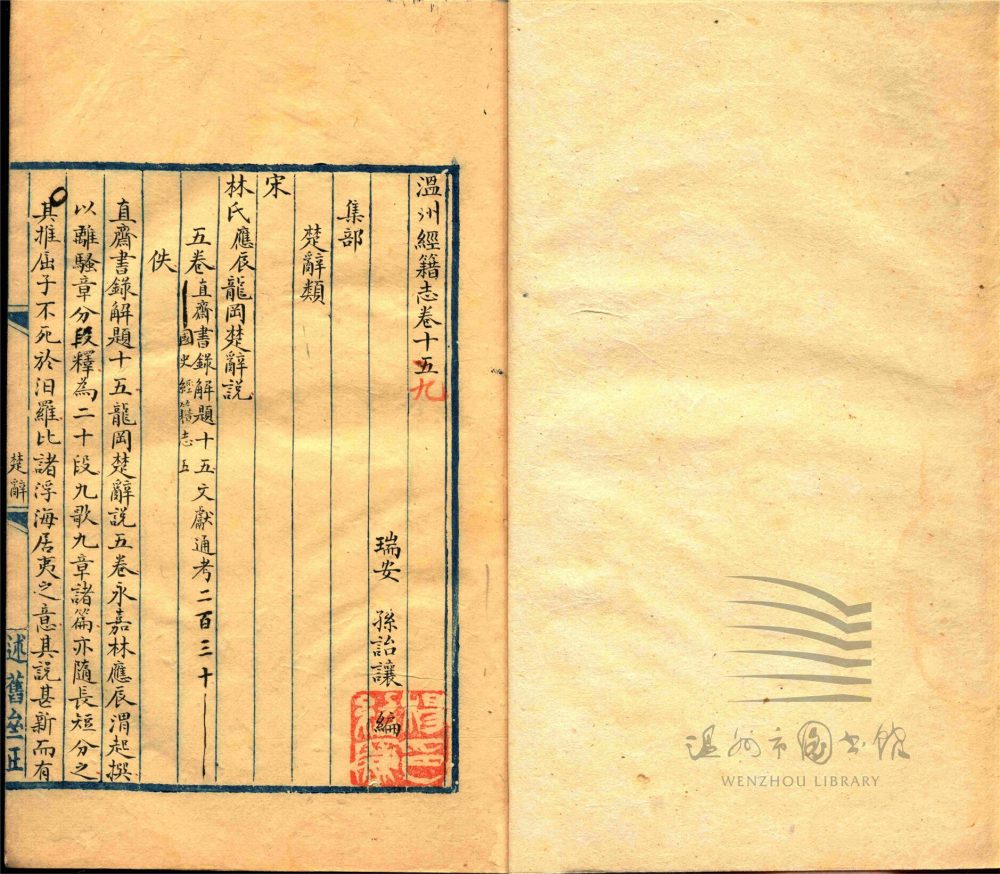 溫州經籍志卷十五九
瑞安 孫詒讓 編
集部
楚辭類
宋
林氏應辰龍岡楚辭說
五卷直齋書錄解題十五文獻通考二百三十
國史經籍志五
佚
直齋書錄解題十五龍岡楚辭說五卷永嘉林應辰渭起撰
以離騷章分段釋為二十段九歌九章諸篇亦隨長短分之
其推屈子不死於汨羅比諸浮海居夷之意其說甚新而有
楚辭
述舊
溫州市圖書館
WENZHOU LIBRARY